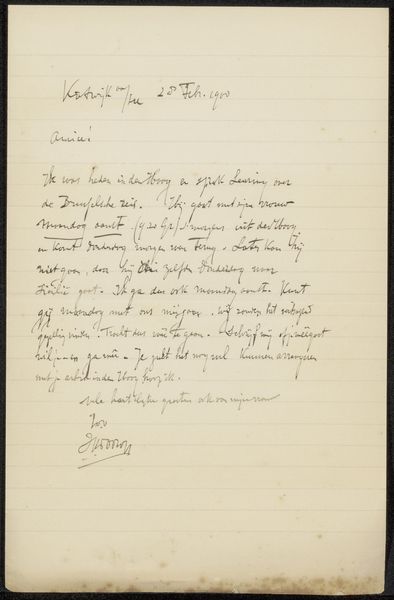 Katwijk aan/zee 28 Feb. 1900
Amice!
Ik was heden in den Haag en sprak Leuring over
de Brusselsche reis. Hij gaat met zijn vrouw
maandag aanst. 's morgens uit den Haag
en komt donderdag morgen weer terug. Later kan hij
niet gaan, daar hij zelfde donderdag naar
Italië gaat. Ik ga dan ook maandag aanst. Kunt
gij maandag met ons meegaan. wij zouden het
gezellig vinden. Tracht dus mee te gaan. Schrijf mij of je meegaat
Je zult het nog wel kunnen arrangeeren
met je arbeid in den Haag
vele hartelijke groeten ook van mijn vrouw
Toorop